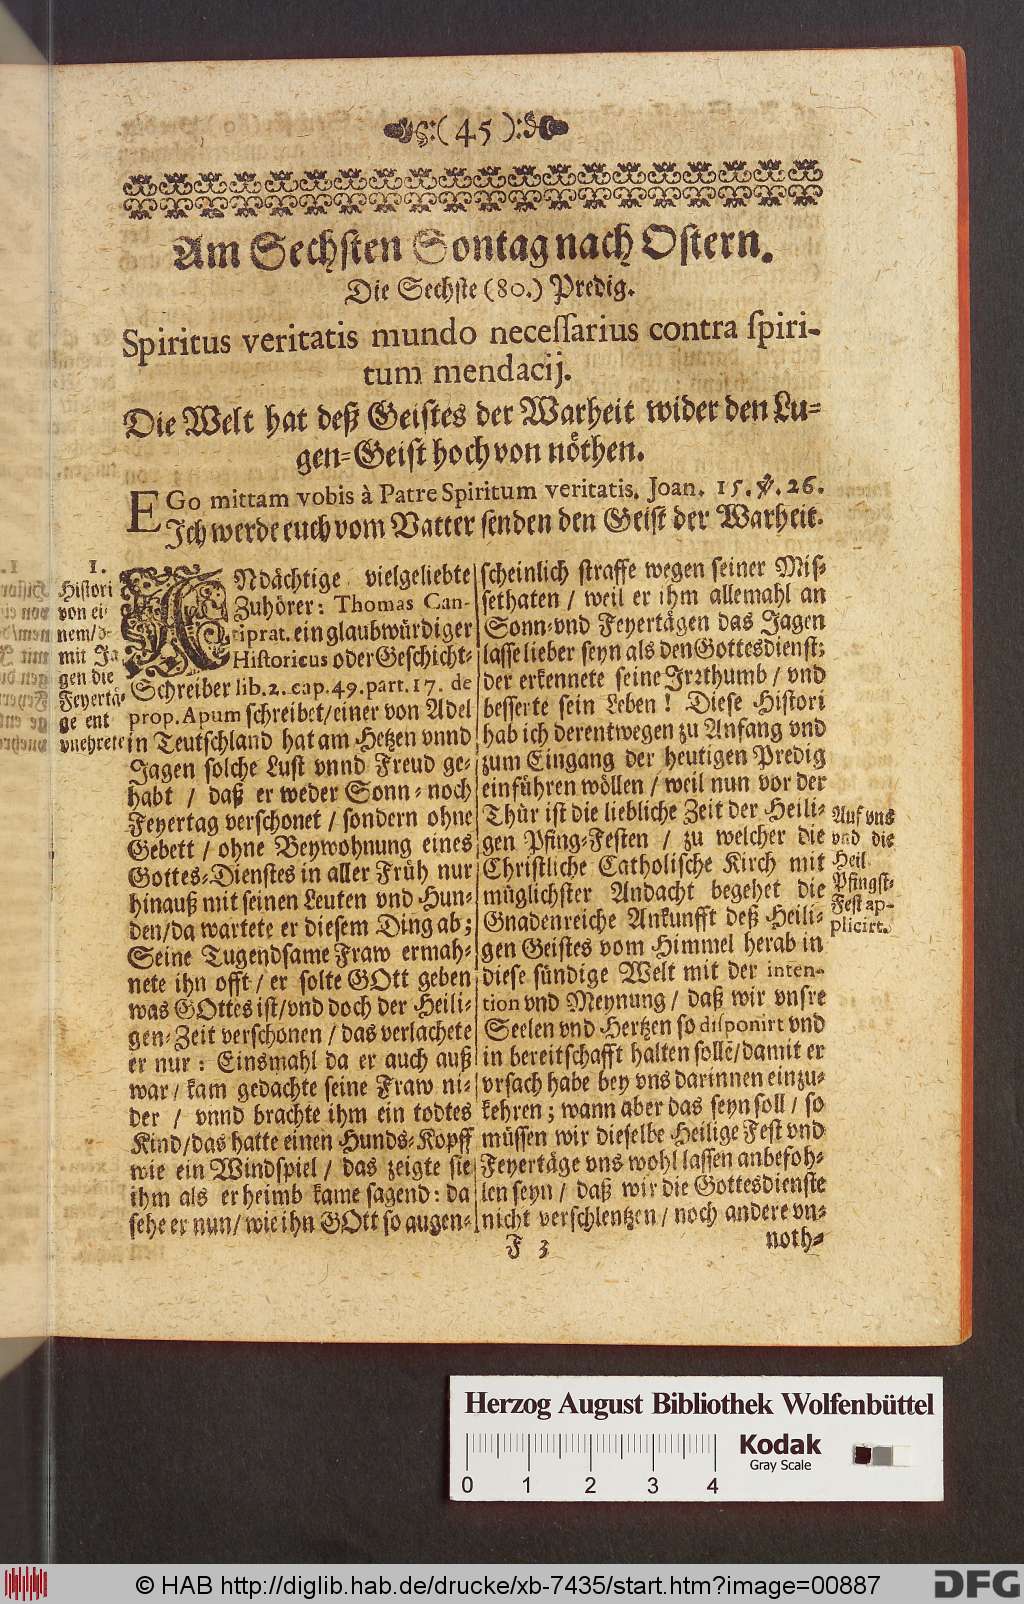 (45)
Am Sechsten Sontag nach Ostern.
Die Sechste (80.) Predig.
Spiritus veritatis mundo necessarius contra spiri-
tum mendacij.
Die Welt hat deß Geistes der Warheit wider den Lu-
gen-Geist hoch von nöthen.
EGo mittam vobis à Patre Spiritum veritatis. Joan. 15. ℣. 26.
Ich werde euch vom Vatter senden den Geist der Warheit.
1.
Histori
von ei-
nem/d-
mit Ja
gen die
Feyertä-
ge ent
vnehrete
ANdächtige vielgeliebte
Zuhörer: Thomas Can-
tiprat. ein glaubwürdiger
Historicus oder Geschicht-
Schreiber lib. 2. cap. 49. part. 17. de
prop. Apum schreibet/einer von Adel
in Teutschland hat am Hetzen vnnd
Jagen solche Lust vnnd Freud ge-
habt / daß er weder Sonn- noch
Feyertag verschonet / sondern ohne
Gebett / ohne Beywohnung eines
Gottes-Dienstes in aller Früh nur
hinauß mit seinen Leuten vnd Hun-
den/da wartete er diesem Ding ab;
Seine Tugendsame Fraw ermah-
nete ihn offt / er solte GOtt geben
was GOttes ist/vnd doch der Heili-
gen-Zeit verschonen / das verlachete
er nur: Einsmahl da er auch auß
war / kam gedachte seine Fraw ni-
der / vnnd brachte ihm ein todtes
Kind/das hatte einen Hunds-Kopff
wie ein Windspiel / das zeigte sie
ihm als er heimb kame sagend: da
sehe er nun/ wie ihn GOtt so augen-
scheinlich straffe wegen seiner Mis-
sethaten / weil er ihm allemahl an
Sonn-vnd Feyertägen das Jagen
lasse lieber seyn als den Gottesdienst;
der erkennete seine Irrthumb / vnd
besserte sein Leben! Diese Histori
hab ich derentwegen zu Anfang vnd
zum Eingang der heutigen Predig
einführen wöllen / weil nun vor der
Thür ist die liebliche Zeit der Heili-
gen Pfing-Festen / zu welcher die
Christliche Catholische Kirch mit
müglichster Andacht begehet die
Gnadenreiche Ankunfft deß Heili-
gen Geistes vom Himmel herab in
diese sündige Welt mit der inten-
tion vnd Meynung / daß wir vnsre
Seelen vnd Hertzen so disponirt vnd
in bereitschafft halten sollē/damit er
vrsach habe bey vns darinnen einzu-
kehren; wann aber das seyn soll / so
müssen wir dieselbe Heilige Fest vnd
Feyertäge vns wohl lassen anbefoh-
len seyn / daß wir die Gottesdienste
nicht verschlentzen / noch andere vn-
Auf vns
vnd die
Heil
Pfingst-
Fest ap-
plicirt.
F 3
noth-
Herzog August Bibliothek Wolfenbüttel
Kodak
Gray Scale
0 1 2 3 4
© HAB http://diglib.hab.de/drucke/xb-7435/start.htm?image=00887
DFG